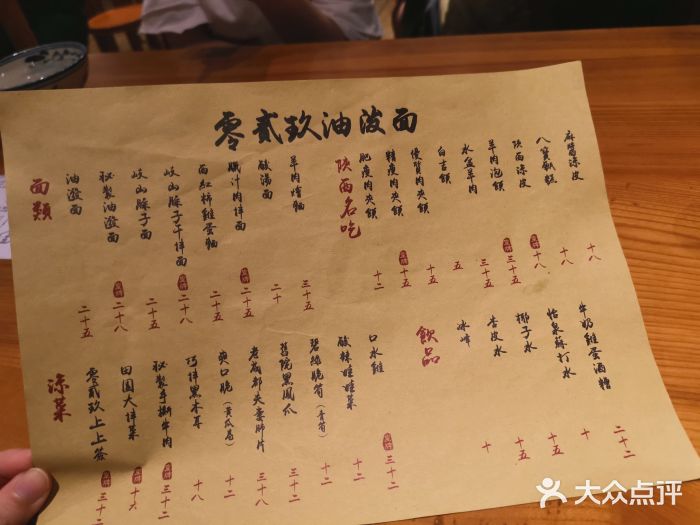 零貳玖油潑面
面類
油潑面 二十五
秘製油潑面 招牌 二十八
岐山臊子面 二十五
岐山臊子干拌面 招牌 二十八
西紅柿雞蛋麵 二十五
臘汁肉拌面 招牌 二十五
酸湯面 二十
羊肉燴麵 三十五
陝西名吃
肥瘦肉夾饃 十二
精瘦肉夾饃 招牌 十五
優質肉夾饃 十五
白吉饃 五
水盆羊肉 三十五
羊肉泡饃 招牌 三十五
陝西涼皮 招牌 十八
八寶甑糕 十八
麻醬涼皮 十八
涼菜
零貳玖上上簽 招牌 三十二
田園大拌菜 招牌 十六
秘製手撕牛肉 招牌 三十二
巧拌黑木耳 十八
爽口脆(黃瓜卷) 十二
老成都夫妻肺片 三十八
舊院黑鳳爪 三十二
碧綠脆筍(青筍) 十二
酸辣娃娃菜 十二
口水雞 招牌 三十二
飲品
冰峰 十
杏皮水 十五
椰子水 十五
怡泉蘇打水 十
牛奶雞蛋酒糟 二十二
大众点评